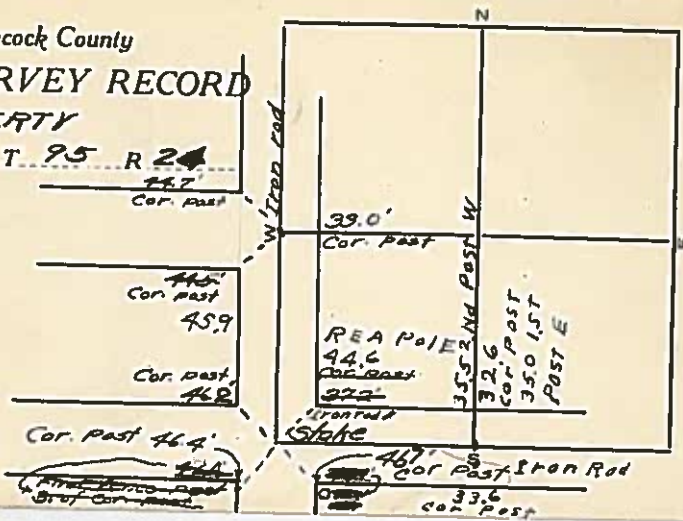 cock County
RVEY RECORD
ERTY
T 95 R 24
N
44.7'
Cor. post
W Iron rod
33.0'
Cor. post
44.5'
Cor. post
45.9
Cor. post
46.8'
REA Pole
44.6
Cor post
Iron rod
Stake
35.5 2nd Post W
32.6
Cor POST
35.0 1ST
POST E
Cor. post 46.4'
46.7'
Cor post
S
Iron Rod
33.6
Cor Post